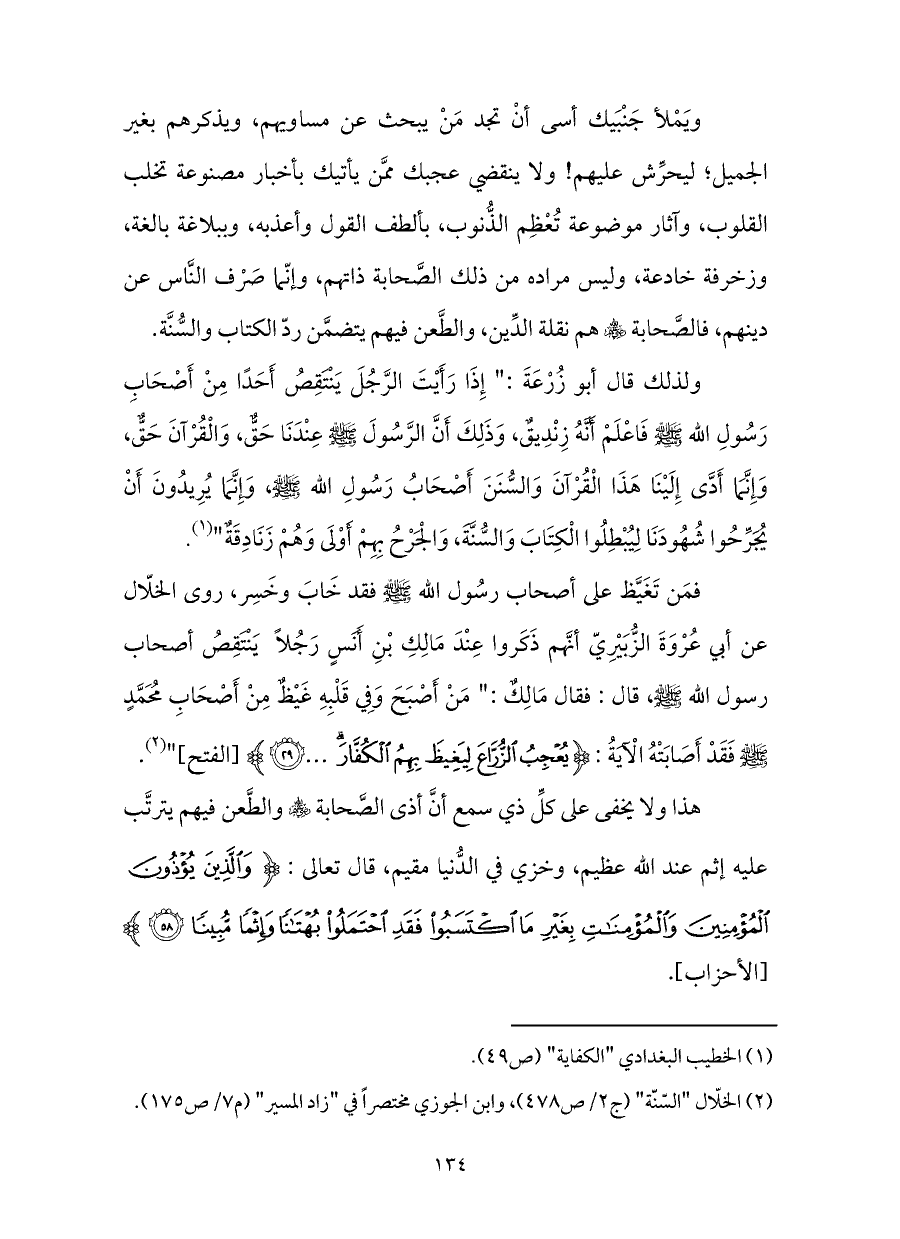 ويَمْلأ جَنْبَيك أسى أنْ تجد مَنْ يبحث عن مساويهم، ويذكرهم بغير
الجميل؛ ليحرِّش عليهم! ولا ينقضي عجبك ممَّن يأتيك بأخبار مصنوعة تخلب
القلوب، وآثار موضوعة تُعْظِم الذُّنوب، بألطف القول وأعذبه، وببلاغة بالغة،
وزخرفة خادعة، وليس مراده من ذلك الصَّحابة ذاتهم، وإنّما صَرْف النَّاس عن
دينهم، فالصَّحابة ﷺ هم نقلة الدِّين، والطَّعن فيهم يتضمَّن ردّ الكتاب والسُّنَّة.
ولذلك قال أبو زُرْعَةَ :" إِذَا رَأَيْتَ الرَّجُلَ يَنْتَقِصُ أَحَدًا مِنْ أَصْحَابِ
رَسُولِ الله ﷺ فَاعْلَمْ أَنَّهُ زِنْدِيقٌ، وَذَلِكَ أَنَّ الرَّسُولَ ﷺ عِنْدَنَا حَقٌّ، وَالْقُرْآنَ حَقٌّ،
وَإِنَّمَا أَدَّى إِلَيْنَا هَذَا الْقُرْآنَ وَالسُّنَنَ أَصْحَابُ رَسُولِ الله ﷺ، وَإِنَّمَا يُرِيدُونَ أَنْ
يُجَرِّحُوا شُهُودَنَا لِيُبْطِلُوا الْكِتَابَ وَالسُّنَّةَ، وَالْجَرْحُ بِهِمْ أَوْلَى وَهُمْ زَنَادِقَةٌ"(١).
فمَن تَغَيَّظ على أصحاب رسُول الله ﷺ فقد خَابَ وخَسِر، روى الخلّال
عن أبي عُرْوَةَ الزُّبَيْرِيّ أنَّهم ذَكَروا عِنْدَ مَالِكِ بْنِ أَنَسٍ رَجُلاً يَنْتَقِصُ أصحاب
رسول الله ﷺ، قال : فقال مَالِكٌ :" مَنْ أَصْبَحَ وَفِي قَلْبِهِ غَيْظٌ مِنْ أَصْحَابِ مُحَمَّدٍ
ﷺ فَقَدْ أَصَابَتْهُ الْآيَةُ : ﴿يُعْجِبُ ٱلزُّرَّاعَ لِيَغِيظَ بِهِمُ ٱلْكُفَّارَ ۗ ... ٢٩﴾ [الفتح]"(٢).
هذا ولا يخفى على كلِّ ذي سمع أنَّ أذى الصَّحابة والطَّعن فيهم يترتَّب
عليه إثم عند الله عظيم، وخزي في الدُّنيا مقيم، قال تعالى : ﴿ وَٱلَّذِينَ يُؤْذُونَ
ٱلْمُؤْمِنِينَ وَٱلْمُؤْمِنَٰتِ بِغَيْرِ مَا ٱكْتَسَبُوا۟ فَقَدِ ٱحْتَمَلُوا۟ بُهْتَٰنًا وَإِثْمًا مُّبِينًا ٥٨ ﴾
[الأحزاب].
(١) الخطيب البغدادي "الكفاية" (ص٤٩).
(٢) الخلّال "السّنّة" (ج٢/ ص٤٧٨)، وابن الجوزي مختصراً في "زاد المسير" (م٧/ ص١٧٥).
١٣٤